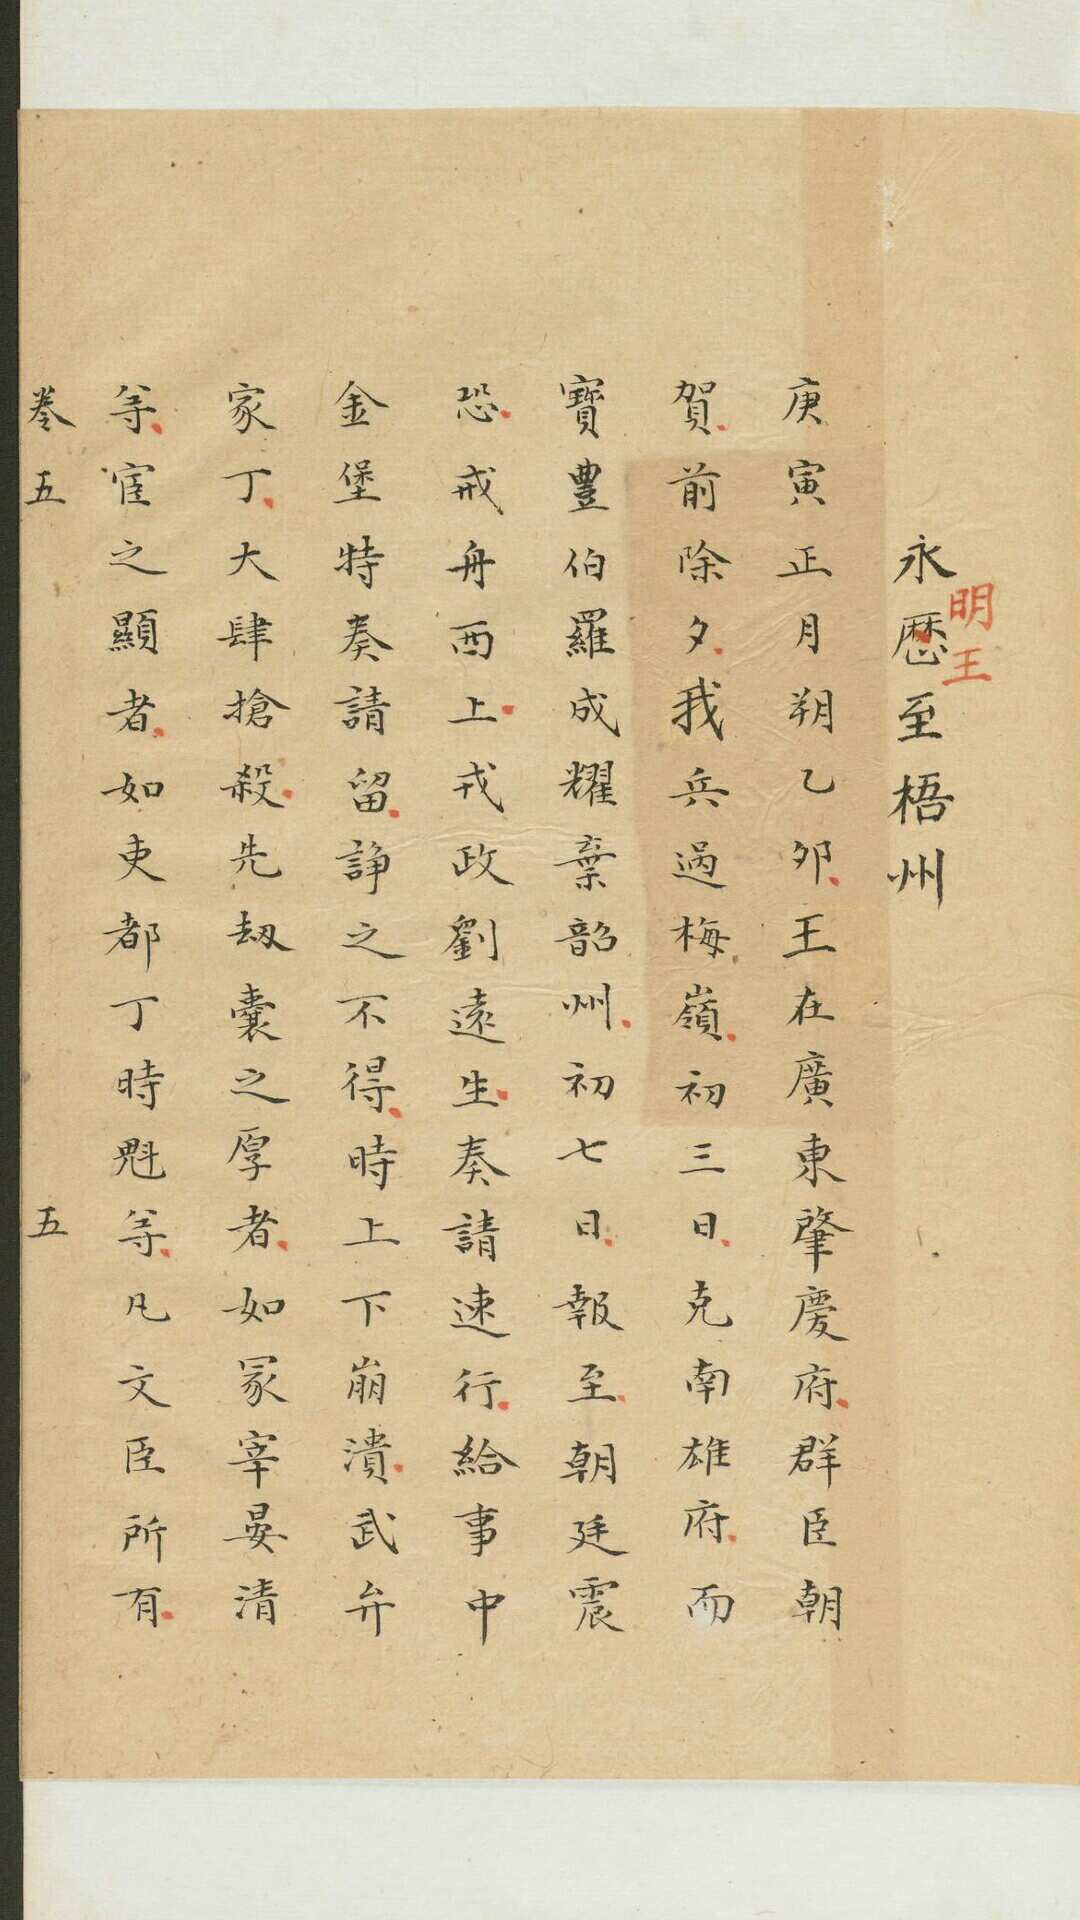 永曆至梧州
明王
庚寅正月朔乙卯王在廣東肇慶府群臣朝
賀前除夕我兵過梅嶺初三日克南雄府而
寶豐伯羅成耀棄韶州初七日報至朝廷震
恐戒舟西上戎政劉遠生奏請速行給事中
金堡特奏請留諍之不得時上下崩潰武弁
家丁大肆搶殺先劫囊之厚者如冢宰晏清
等宦之顯者如吏都丁時魁等凡文臣所有
卷五 五